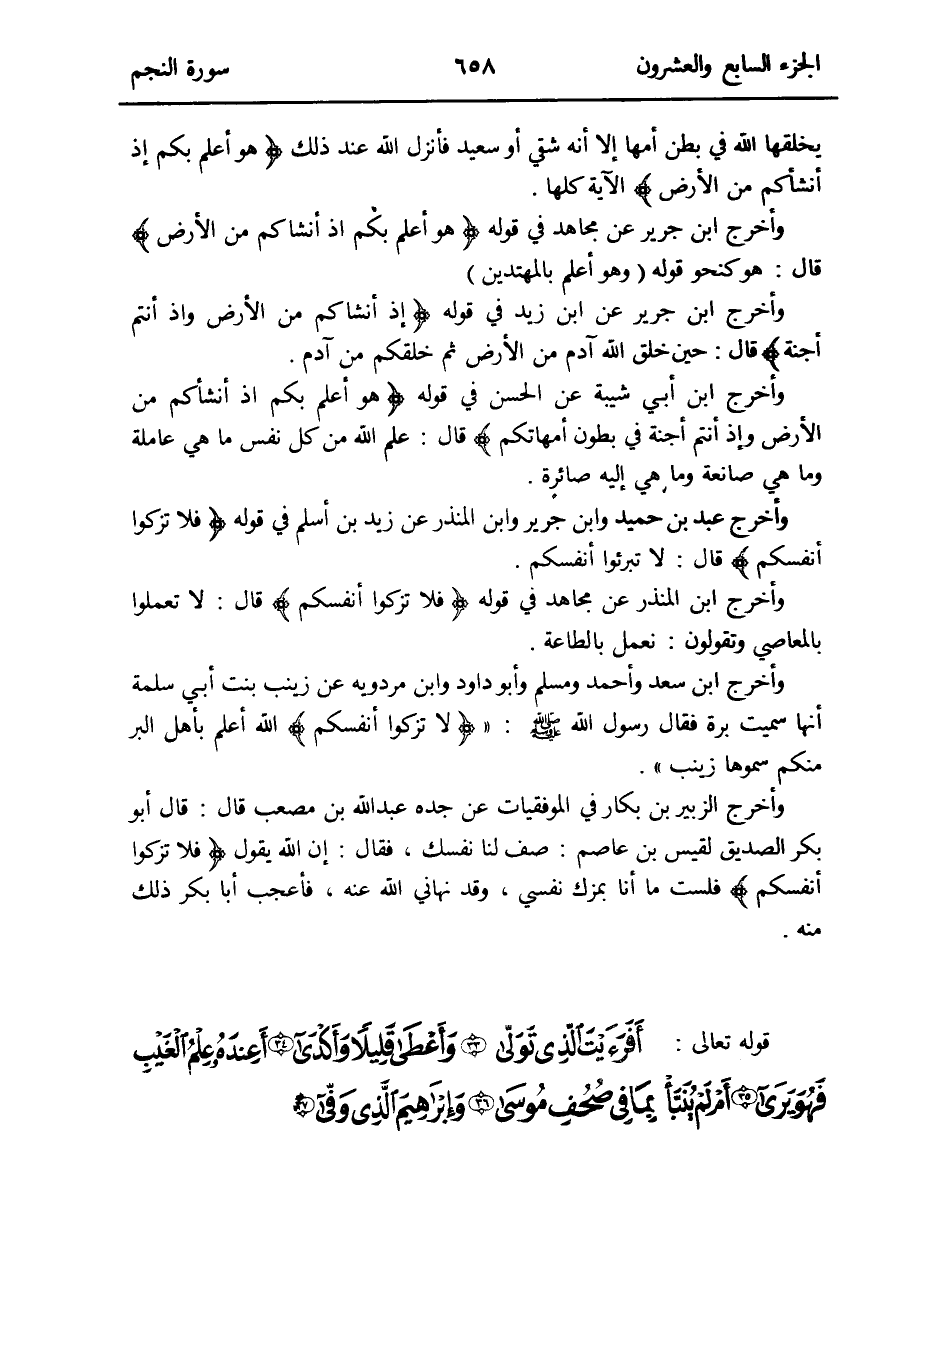 الجزء السابع والعشرون ٦٥٨ سورة النجم
يخلقها الله في بطن أمها إلا أنه شقي أو سعيد فأنزل الله عند ذلك ﴿ هو أعلم بكم إذ
أنشأكم من الأرض ﴾ الآية كلها .
وأخرج ابن جرير عن مجاهد في قوله ﴿ هو أعلم بكم اذ أنشاكم من الأرض ﴾
قال : هو كنحو قوله ( وهو أعلم بالمهتدين )
وأخرج ابن جرير عن ابن زيد في قوله ﴿ إذ أنشاكم من الأرض واذ أنتم
أجنة ﴾ قال : حين خلق الله آدم من الأرض ثم خلقكم من آدم .
وأخرج ابن أبي شيبة عن الحسن في قوله ﴿ هو أعلم بكم اذ أنشأكم من
الأرض وإذ أنتم أجنة في بطون أمهاتكم ﴾ قال : علم الله من كل نفس ما هي عاملة
وما هي صانعة وما هي إليه صائرة .
وأخرج عبد بن حميد وابن جرير وابن المنذر عن زيد بن أسلم في قوله ﴿ فلا تزكوا
أنفسكم ﴾ قال : لا تبرئوا أنفسكم .
وأخرج ابن المنذر عن مجاهد في قوله ﴿ فلا تزكوا أنفسكم ﴾ قال : لا تعملوا
بالمعاصي وتقولون : نعمل بالطاعة .
وأخرج ابن سعد وأحمد ومسلم وأبو داود وابن مردويه عن زينب بنت أبي سلمة
أنها سميت برة فقال رسول الله ﷺ : « ﴿ لا تزكوا أنفسكم ﴾ الله أعلم بأهل البر
منكم سموها زينب » .
وأخرج الزبير بن بكار في الموفقيات عن جده عبدالله بن مصعب قال : قال أبو
بكر الصديق لقيس بن عاصم : صف لنا نفسك ، فقال : إن الله يقول ﴿ فلا تزكوا
أنفسكم ﴾ فلست ما أنا بمزك نفسي ، وقد نهاني الله عنه ، فأعجب أبا بكر ذلك
منه .
قوله تعالى : أَفَرَءَيْتَ ٱلَّذِى تَوَلَّىٰ ٣٣ وَأَعْطَىٰ قَلِيلًا وَأَكْدَىٰٓ ٣٤ أَعِندَهُۥ عِلْمُ ٱلْغَيْبِ
فَهُوَ يَرَىٰٓ ٣٥ أَمْ لَمْ يُنَبَّأْ بِمَا فِى صُحُفِ مُوسَىٰ ٣٦ وَإِبْرَٰهِيمَ ٱلَّذِى وَفَّىٰٓ ٣٧